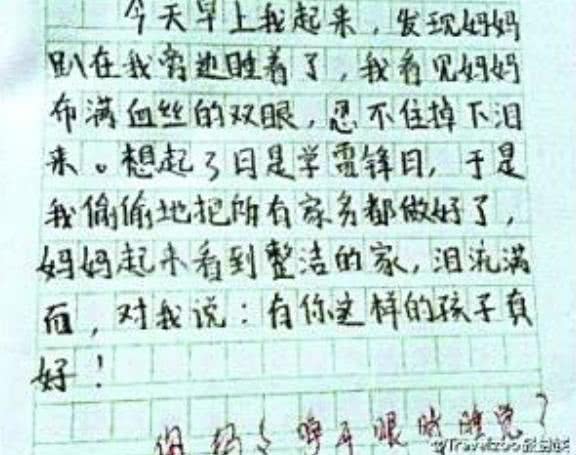 今天早上我起来，发现妈妈
趴在我旁边睡着了，我看见妈妈
布满血丝的双眼，忍不住掉下泪
来。想起了日是学雷锋日，于是
我偷偷地把所有家务都做好了，
妈妈起来看到整洁的家，泪流满
面，对我说：有你这样的孩子真
好！
你妈妈睁开眼睛睡觉？
@Travelzoo